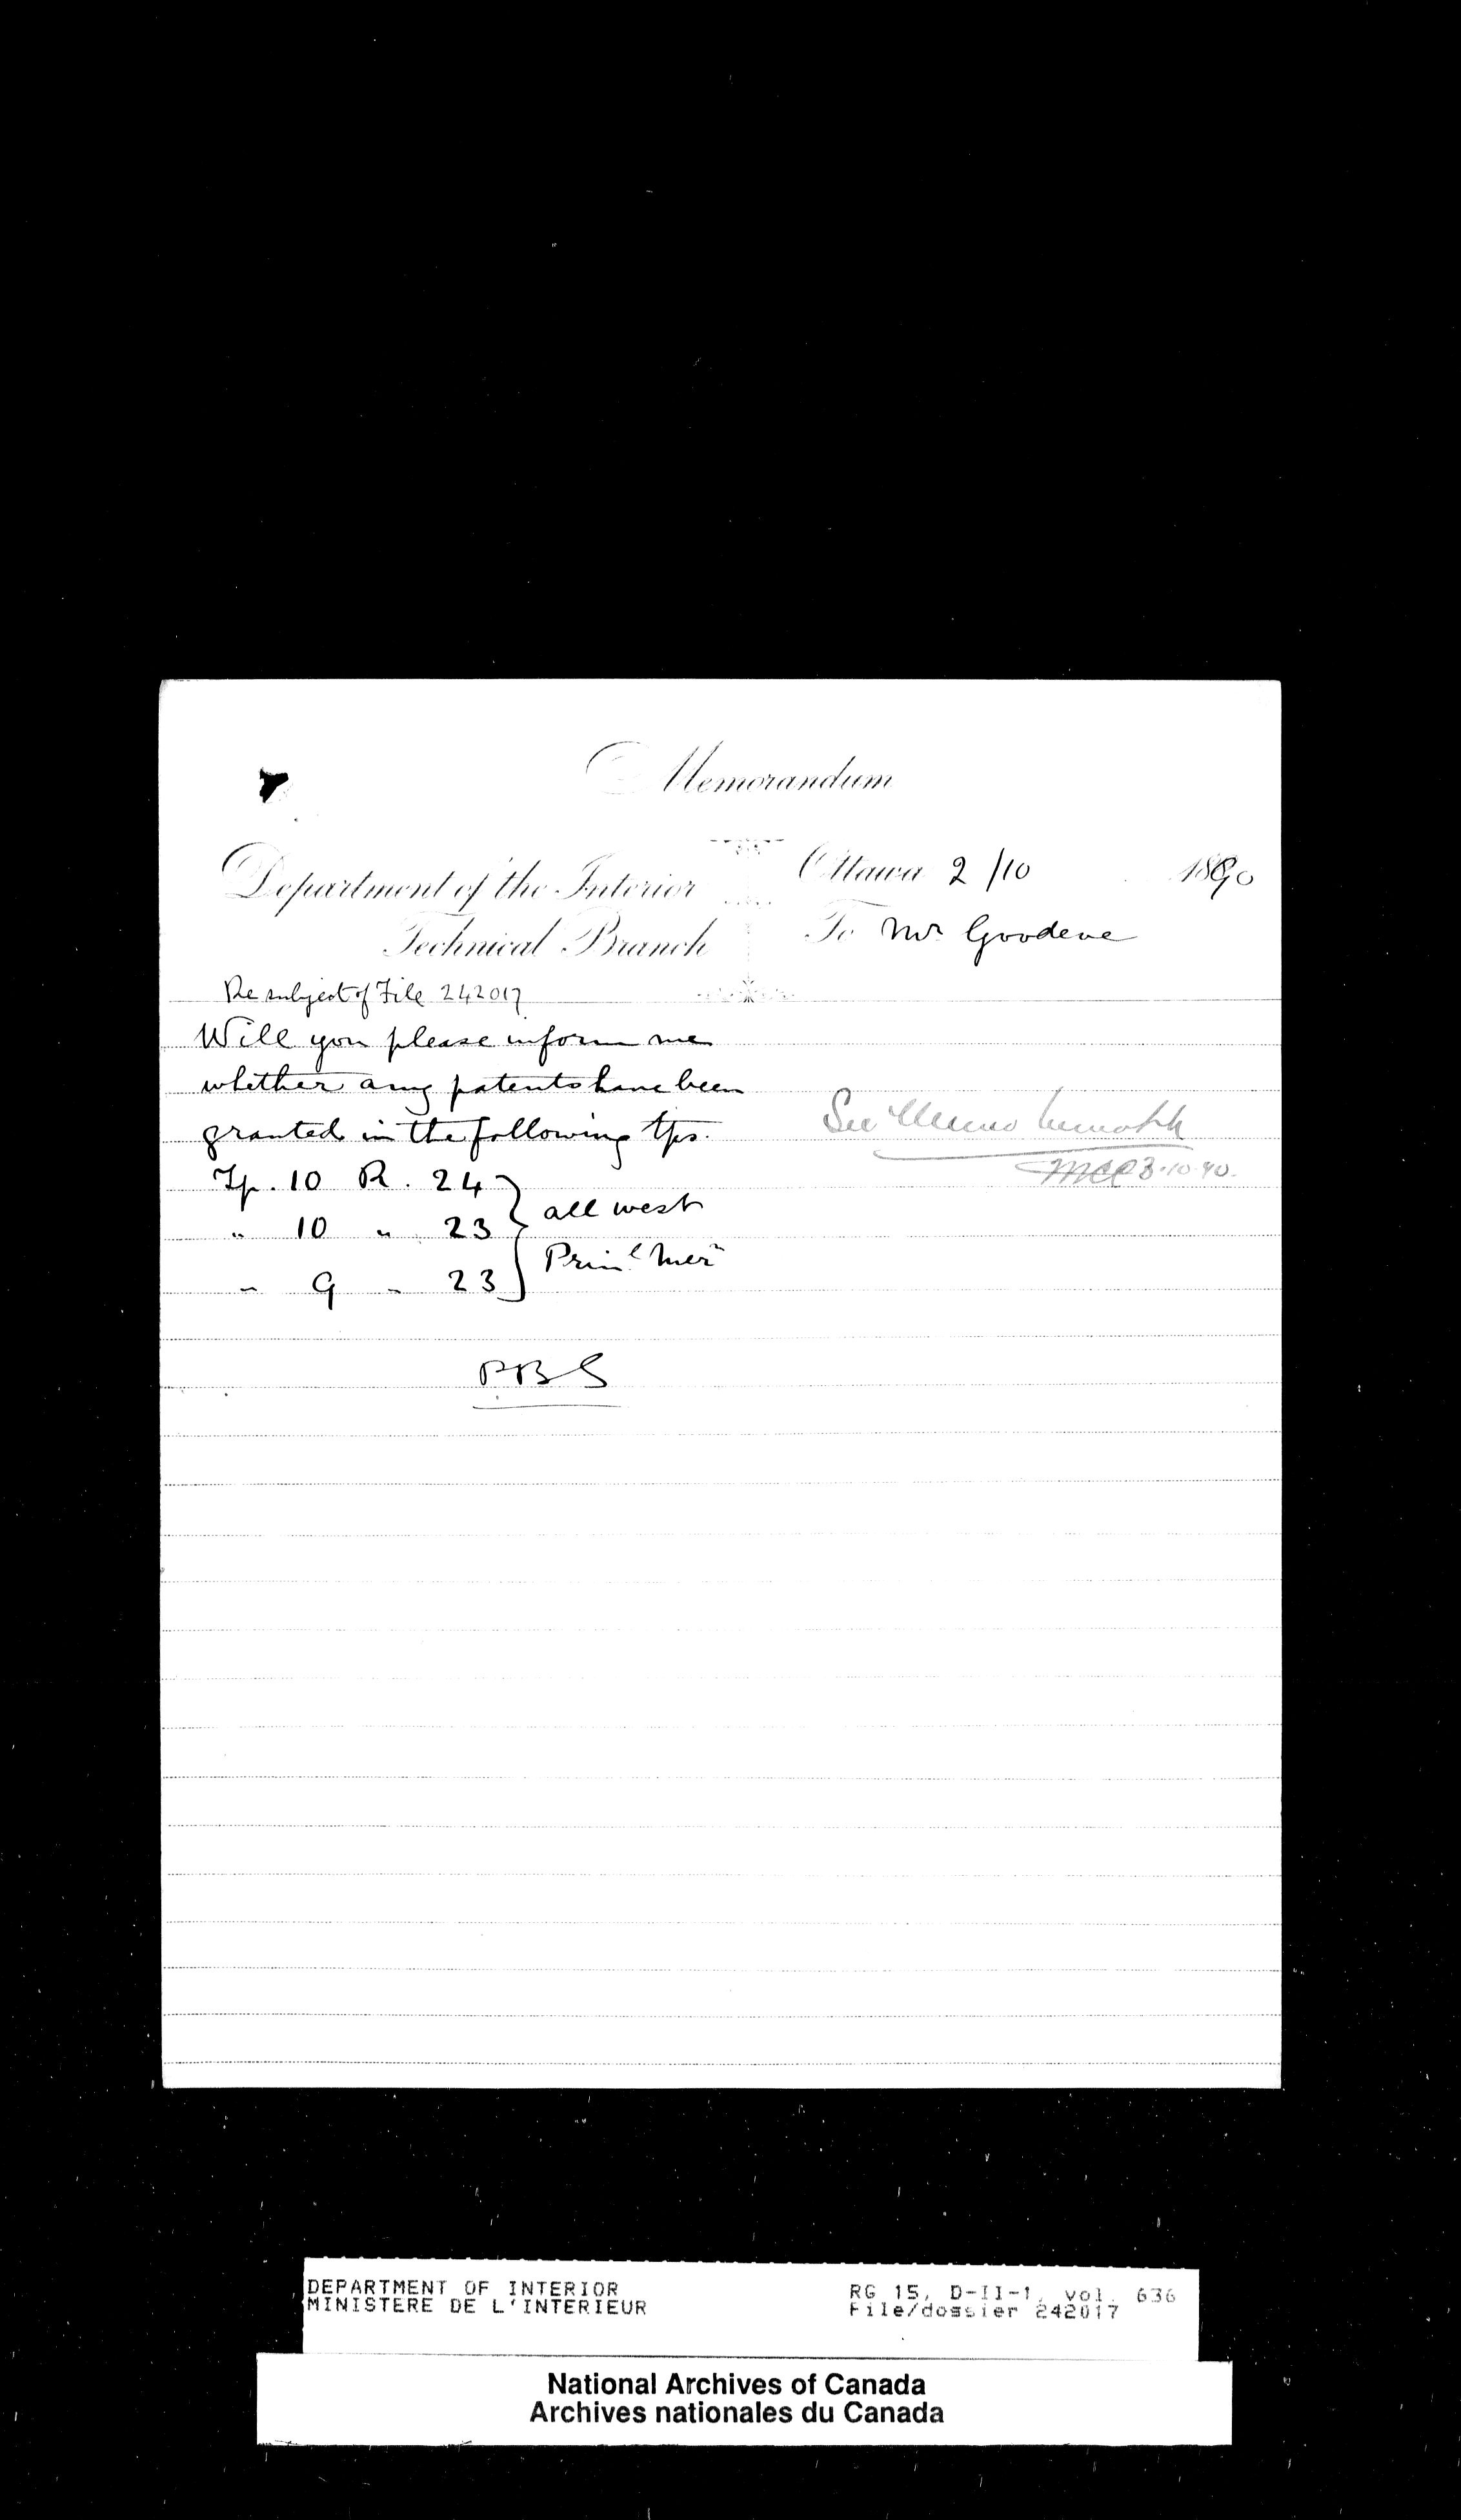 Memorandum
Department of the Interior
Technical Branch
Ottawa 2/10 1890
To Mr. Goodeve
Re subject of File 242017
Will you please inform me
whether any patents have been
granted in the following tps.
Tp. 10 R. 24
" 10 " 23
" 9 " 23
all west
Prinl Mern
PBS
See Memo herewith
3.10.90.
DEPARTMENT OF INTERIOR
MINISTERE DE L'INTERIEUR
RG 15, D-II-1, vol. 636
File/dossier 242017
National Archives of Canada
Archives nationales du Canada